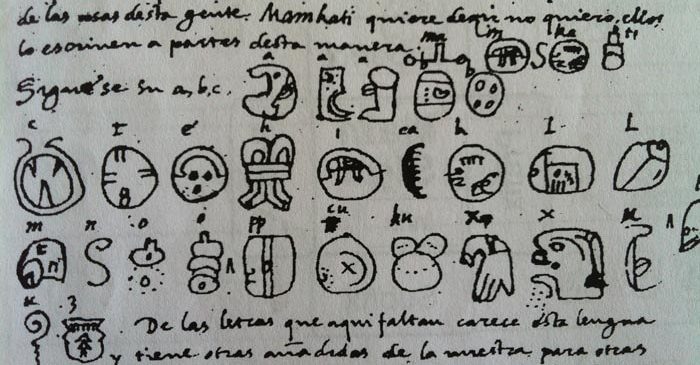 de las cosas desta gente. Mainkati quiere dezir no quiero, ellos
lo escriven a partes desta manera: ma in ka ti
Siguese su a, b, c. a a a b b
c t e h i ca k l l
m n o o pp cu ku x x u
u z De las letras que aqui faltan carece esta lengua
y tiene otras añadidas de la nuestra para otras